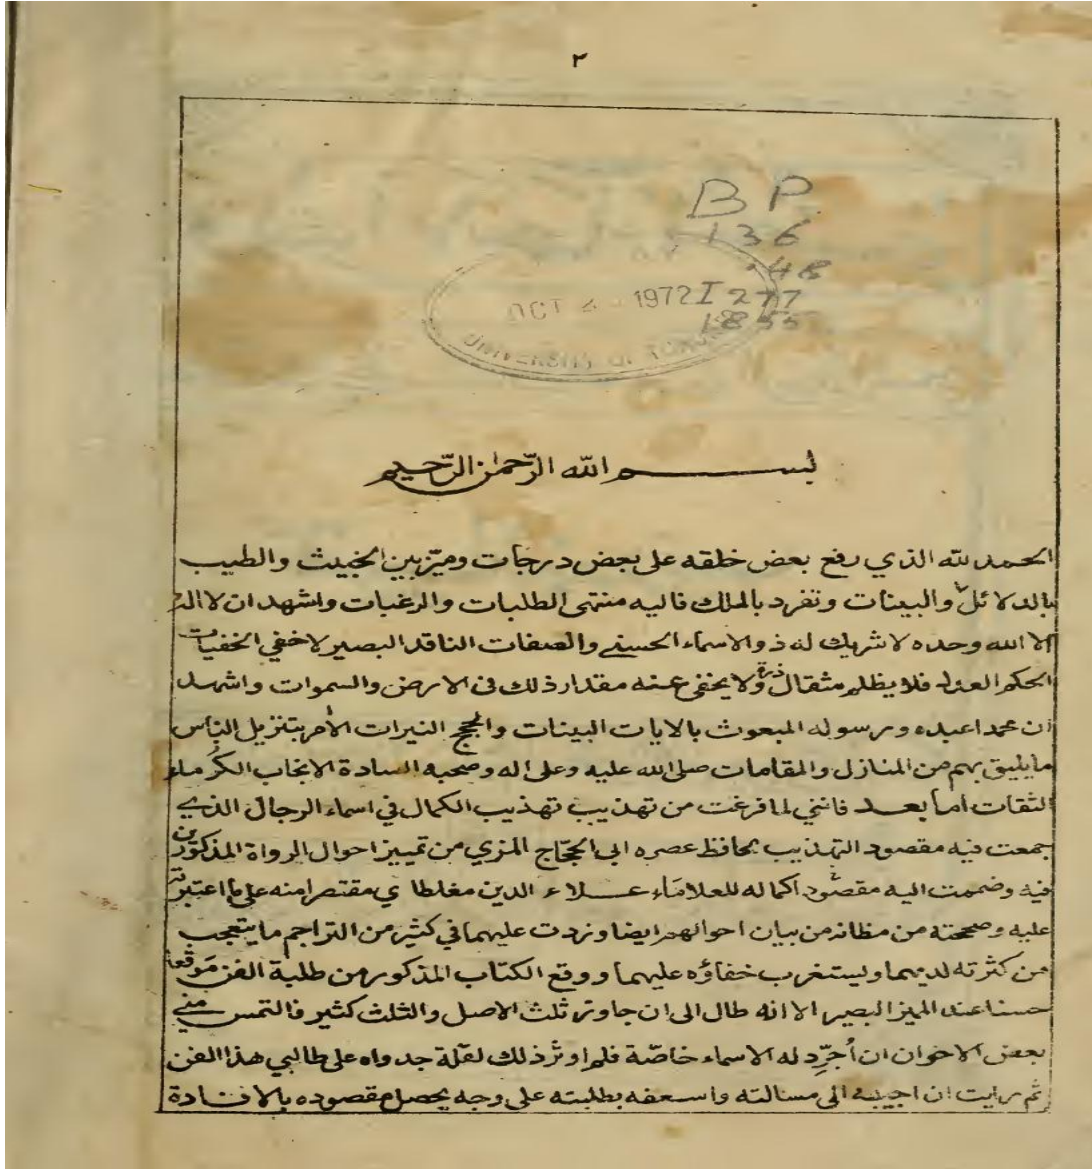 ٢
BP
136
.48
I277
1855
OCT 1972
UNIVERSITY OF TORONTO
بسم الله الرّحمٰن الرّحيم
الحمد لله الذي رفع بعض خلقه على بعض درجات وميّز بين الخبيث والطيب
بالدلائل والبينات وتفرد بالملك فاليه منتهى الطلبات والرغبات واشهد ان لا اله
الا الله وحده لا شريك له ذو الاسماء الحسنى والصفات الناقد البصير لاخفي الخفيات
الحكم العدل فلا يظلم مثقال ذرة ولا يخفى عنه مقدار ذلك في الارض والسموات واشهد
ان محمدا عبده ورسوله المبعوث بالايات البينات والحجج النيرات الأمر بتنزيل الناس
ما يليق بهم من المنازل والمقامات صلى الله عليه وعلى اله وصحبه السادة الانجاب الكرماء
الثقات أما بعد فانني لما فرغت من تهذيب تهذيب الكمال في اسماء الرجال الذي
جمعت فيه مقصود التهذيب لحافظ عصره ابى الحجّاج المزي من تمييز احوال الرواة المذكورين
فيه وضممت اليه مقصود اكماله للعلاماء عــلاء الدين مغلطاي مقتصرا منه على ما اعتبرته
عليه وصححته من مظانه من بيان احوالهم ايضا وزدت عليهما في كثير من التراجم ما يتعجب
من كثرته لديهما ويستغرب خفاؤه عليهما ووقع الكتاب المذكور من طلبة الفن مَوقعا
حسنا عند المميز البصير الا انه طال الى ان جاوز ثلث الاصل والثلث كثير فالتمس منى
بعض الاخوان ان أُجرِّد له الاسماء خاصّة فلم اوثر ذلك لقلة جدواه على طالبي هذا الفن
ثم رايت ان اجيبه الى مسالته واسعفه بطلبته على وجه يحصل مقصوده بالافادة